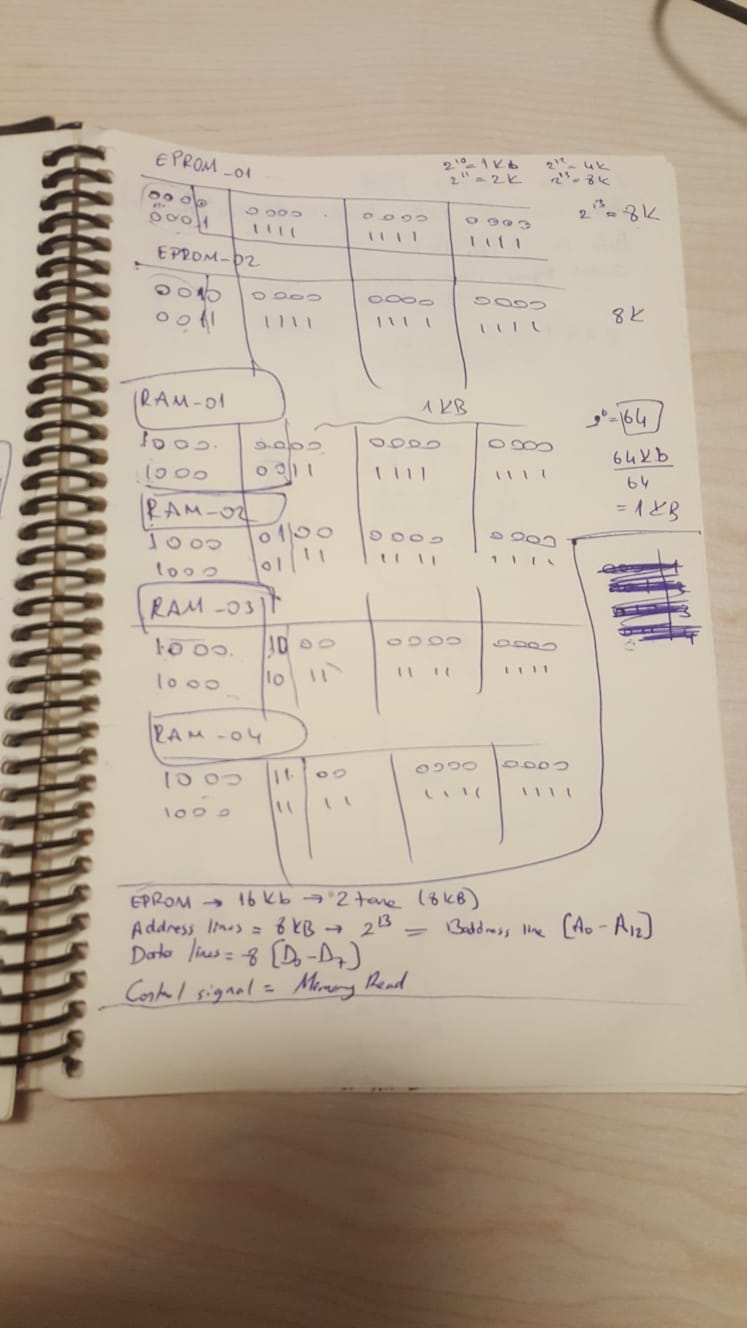 EPROM_01
2¹⁰=1Kb 2¹²=4K
2¹¹=2K 2¹³=8K
0000 0000 0000 0000 2¹³=8K
0001 1111 1111 1111
EPROM-02
0010 0000 0000 0000
0011 1111 1111 1111 8K
RAM-01 1KB
1000 0000 0000 0000 =64
1000 0011 1111 1111 64Kb
64
RAM-02 =1KB
1000 0100 0000 0000
1000 0111 1111 1111
RAM-03
1000 1000 0000 0000
1000 1011 1111 1111
RAM-04
1000 1100 0000 0000
1000 1111 1111 1111
EPROM → 16Kb → 2 tane (8KB)
Address lines = 8KB → 2¹³ = 13address line [A₀-A₁₂]
Data lines = 8 [D₀-D₇]
Control signal = Memory Read